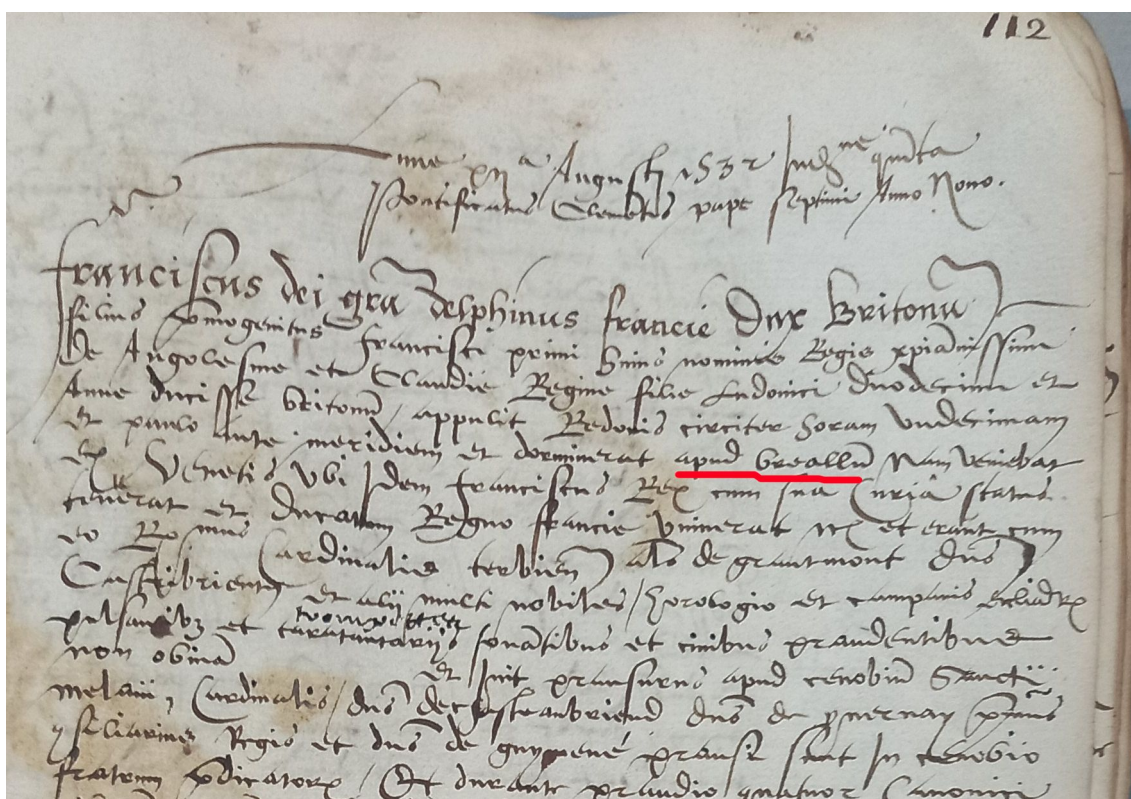 112
Anno Augusti 1532 Ind.ne quinta
Pontificatus Clemetis pape septimi Anno Nono.
franciscus dei gra delphinus francie Dux Britonu
filius pmogenitus francisci primi huius nominis Regis xpianissimi
de Angolesme et Claudie Regine filie Ludovici duodecimi et
Anne ducisse britonu, appulit Redonis circiter horam undecimam
et paulo ante meridiem et dormierat apud breallu Nam veniebat
ex Venetis ubi Idem franciscus Rex cum sua Curia status
tenuerat et ducatum Regno francie univerat et erant cum
eo R mus Cardinalis terbien als de grantmont dns
Castribrienty et alii multi nobiles / horologio et campanis
trompettes
pulsantibz et taratantariis sonatibus et civibus gaudentibus
non et Ivit pransurus apud cenobiu Sancti
melanii, Cardinalis / dns de Castraubriend dns de
Regis et dns de guypene pransi sunt In cenobio
fratrum pdicatorx / Et durante prandio quatuor Canonici